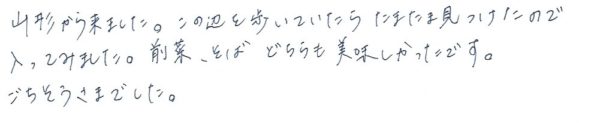 山形から来ました。この辺を歩いていたら たまたま見つけたので
入ってみました。前菜、そば どちらも美味しかったです。
ごちそうさまでした。